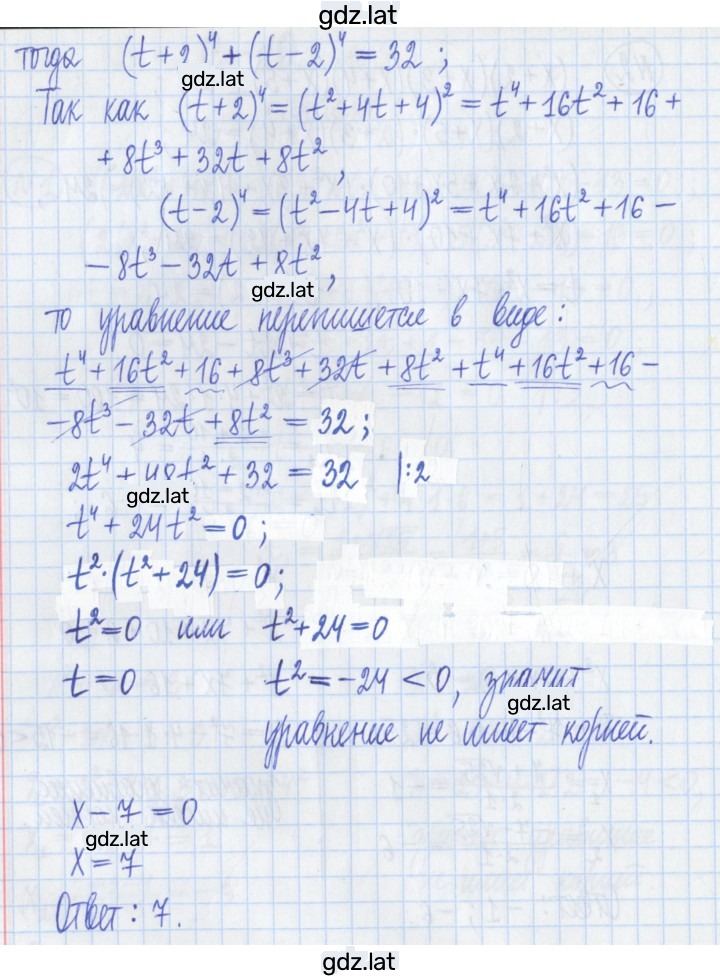 gdz.lat
тогда (t+2)⁴+(t-2)⁴=32;
gdz.lat
Так как (t+2)⁴=(t²+4t+4)²=t⁴+16t²+16+
+8t³+32t+8t²,
(t-2)⁴=(t²-4t+4)²=t⁴+16t²+16-
-8t³-32t+8t²,
gdz.lat
то уравнение перепишется в виде:
t⁴+16t²+16+8t³+32t+8t²+t⁴+16t²+16-
-8t³-32t+8t²=32;
2t⁴+48t²+32=32 |:2
gdz.lat
t⁴+24t²=0;
t²·(t²+24)=0;
t²=0 или t²+24=0
t=0 t²=-24<0, значит
gdz.lat
уравнение не имеет корней.
x-7=0
gdz.lat
x=7
Ответ: 7.
gdz.lat